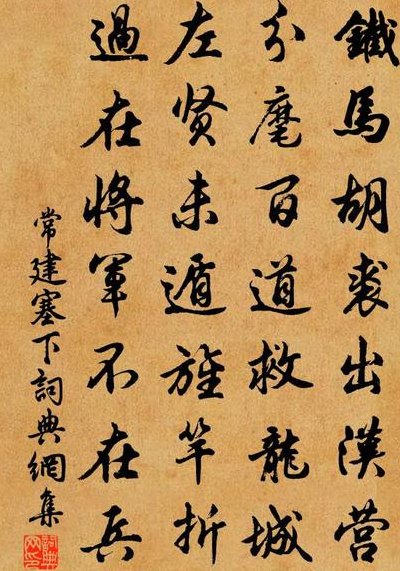 鐵馬胡裘出漢营
分麾百道救龍城
左贤未遁旌竿折
過在将軍不在兵
常建塞下詞典網集